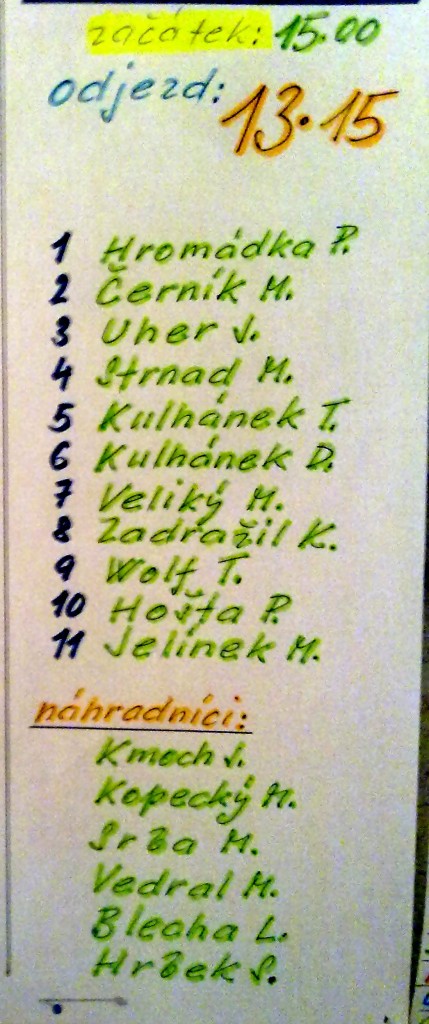 začátek: 15.00
odjezd: 13.15
1 Hromádka P.
2 Černík M.
3 Uher J.
4 Strnad M.
5 Kulhánek T.
6 Kulhánek D.
7 Veliký M.
8 Zadražil K.
9 Wolf T.
10 Hošťa P.
11 Jelínek M.
náhradníci:
Kmoch J.
Kopecký M.
Srba M.
Vedral M.
Blecha L.
Hrbek S.